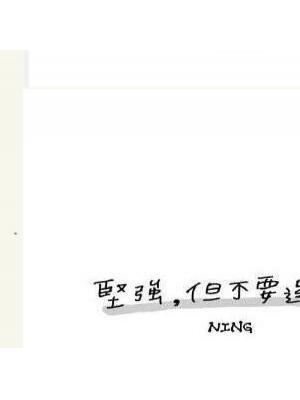 堅強,但不要
NING